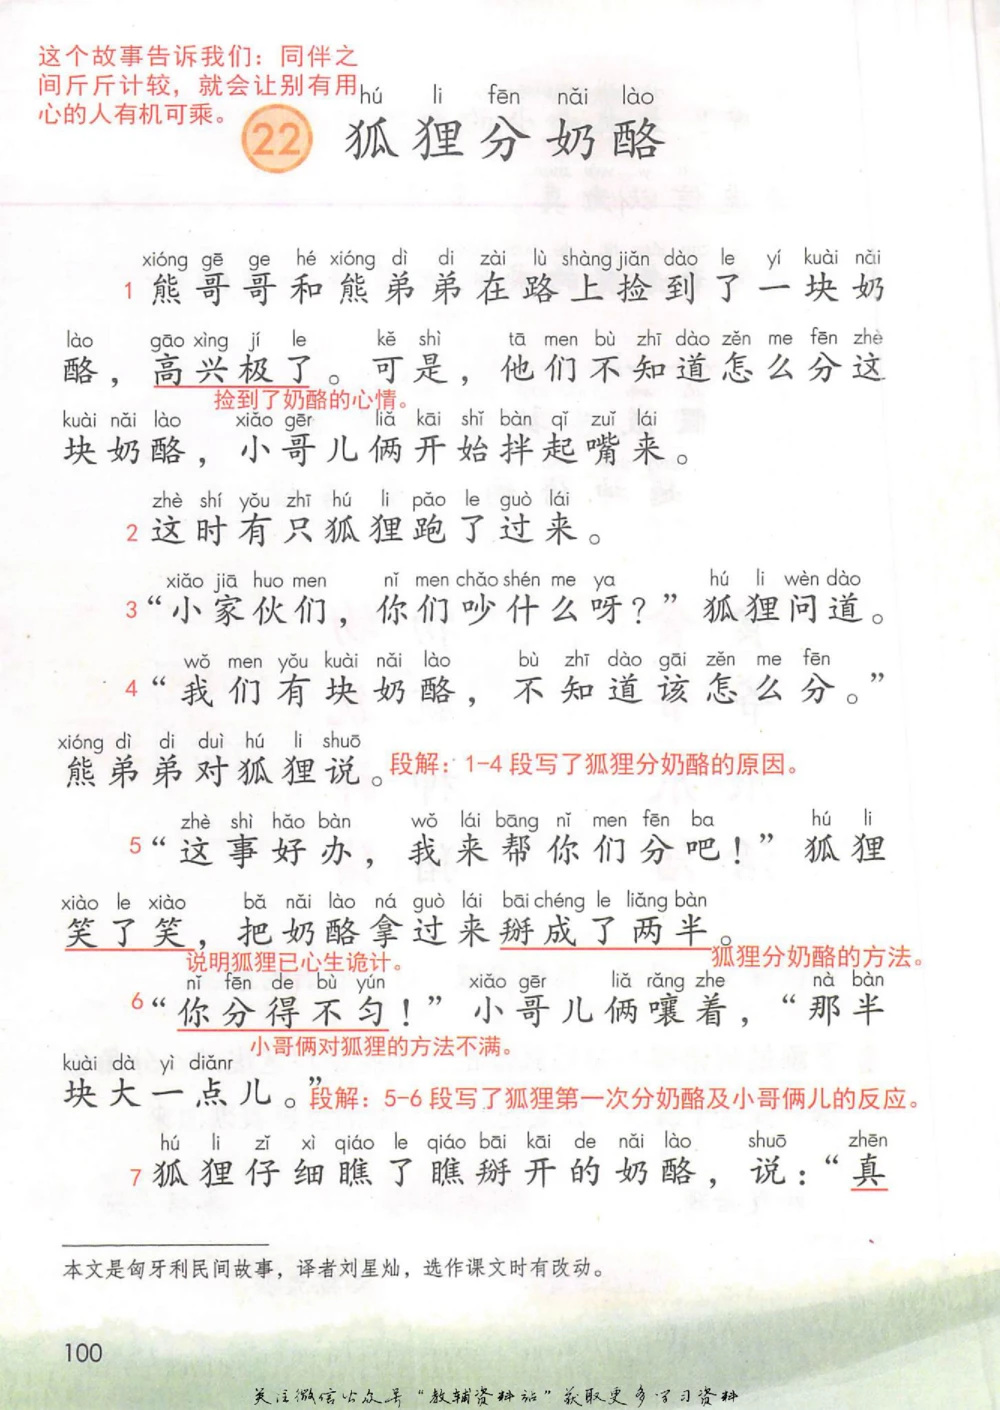 这个故事告诉我们：同伴之
间斤斤计较，就会让别有用
心的人有机可乘。
hú li fēn nǎi lào
22 狐狸分奶酪
xióng gē ge hé xióng dì di zài lù shàng jiǎn dào le yí kuài nǎi
1 熊哥哥和熊弟弟在路上捡到了一块奶
lào gāo xìng jí le kě shì tā men bù zhī dào zěn me fēn zhè
酪，高兴极了。可是，他们不知道怎么分这
捡到了奶酪的心情。
kuài nǎi lào xiǎo gēr liǎ kāi shǐ bàn qǐ zuǐ lái
块奶酪，小哥儿俩开始拌起嘴来。
zhè shí yǒu zhī hú li pǎo le guò lái
2 这时有只狐狸跑了过来。
xiǎo jiā huo men nǐ men chǎo shén me ya hú li wèn dào
3 “小家伙们，你们吵什么呀？”狐狸问道。
wǒ men yǒu kuài nǎi lào bù zhī dào gāi zěn me fēn
4 “我们有块奶酪，不知道该怎么分。”
xióng dì di duì hú li shuō
熊弟弟对狐狸说。段解：1-4段写了狐狸分奶酪的原因。
zhè shì hǎo bàn wǒ lái bāng nǐ men fēn ba hú li
5 “这事好办，我来帮你们分吧！”狐狸
xiào le xiào bǎ nǎi lào ná guò lái bāi chéng le liǎng bàn
笑了笑，把奶酪拿过来掰成了两半。
说明狐狸已心生诡计。 狐狸分奶酪的方法。
nǐ fēn de bù yún xiǎo gēr liǎ rǎng zhe nà bàn
6 “你分得不匀！”小哥儿俩嚷着，“那半
小哥俩对狐狸的方法不满。
kuài dà yì diǎnr
块大一点儿。”段解：5-6段写了狐狸第一次分奶酪及小哥俩儿的反应。
hú li zǐ xì qiáo le qiáo bāi kāi de nǎi lào shuō zhēn
7 狐狸仔细瞧了瞧掰开的奶酪，说：“真
本文是匈牙利民间故事，译者刘星灿，选作课文时有改动。
100
关注微信公众号“教辅资料站”获取更多学习资料